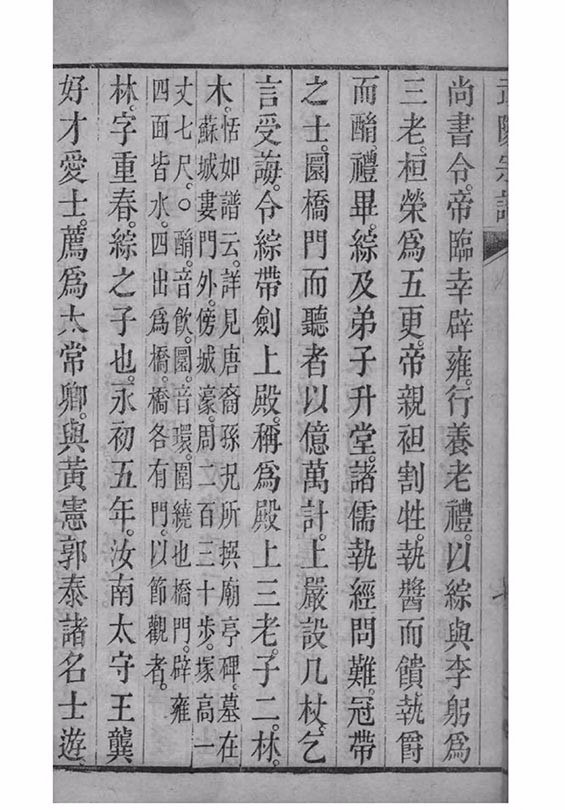 尚書令。帝臨幸辟雍。行養老禮。以綜與李躬為
三老。桓榮為五更。帝親袒割牲。執醬而饋。執爵
而酳。禮畢。綜及弟子升堂。諸儒執經問難。冠帶
之士。圜橋門而聽者以億萬計。上嚴設几杖。乞
言受誨。令綜帶劍上殿。稱為殿上三老。子二。林。
木。恬如譜云。詳見唐裔孫況所撰廟亭碑。墓在
蘇城婁門外。傍城濠。周二百三十步。塚高一
丈七尺。○酳。音飲。圜。音環。圍繞也。橋門。辟雍
四面皆水。四出為橋。橋各有門。以節觀者。
林。字重春。綜之子也。永初五年。汝南太守王龔
好才愛士。薦為太常卿。與黃憲郭泰諸名士遊。